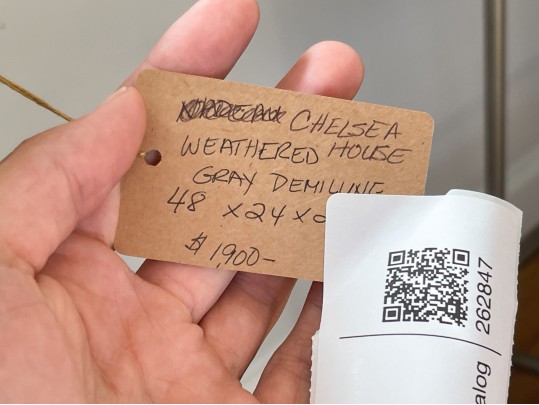 CHELSEA
WEATHERED HOUSE
GRAY DEMILUNE
48 x 24 x
$ 1,900-
alog / 262847